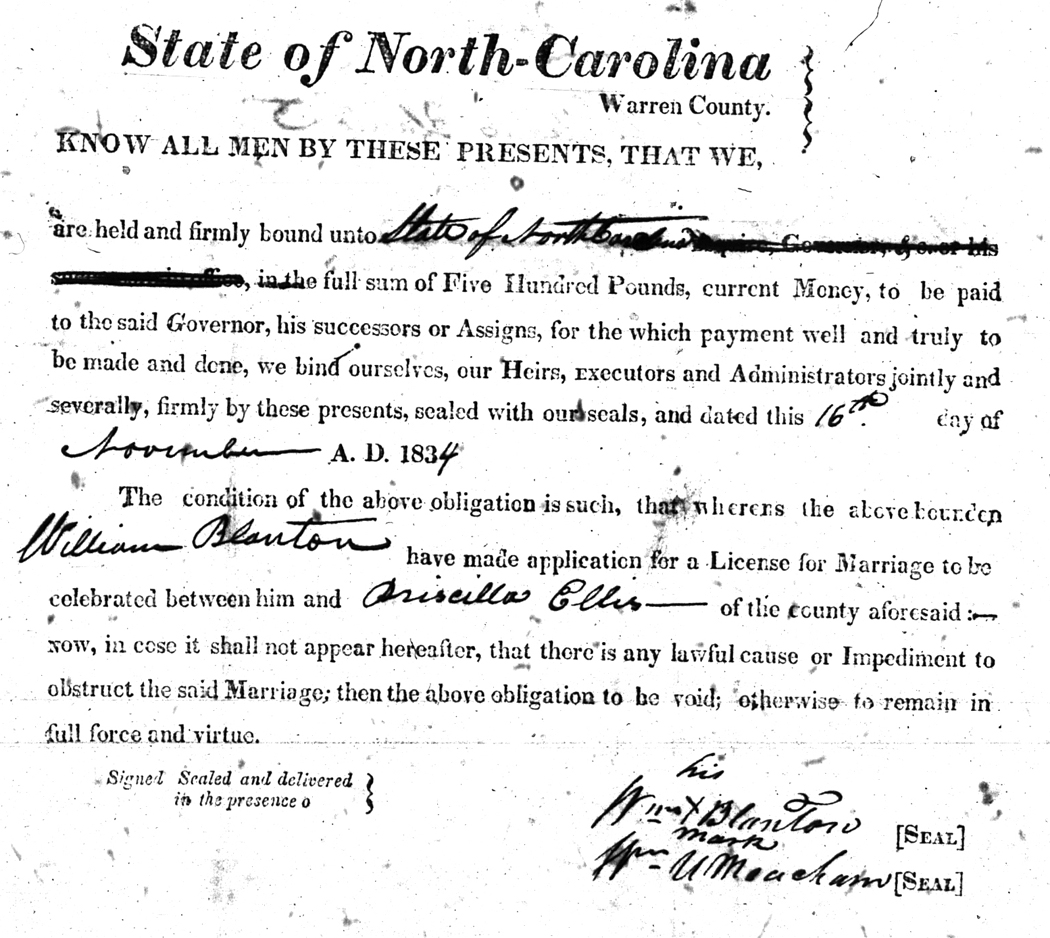 State of North-Carolina
Warren County.
KNOW ALL MEN BY THESE PRESENTS, THAT WE,
are held and firmly bound unto State of North Carolina Governor, &c. or his
in the full sum of Five Hundred Pounds, current Money, to be paid
to the said Governor, his successors or Assigns, for the which payment well and truly to
be made and done, we bind ourselves, our Heirs, Executors and Administrators jointly and
severally, firmly by these presents, sealed with our seals, and dated this 16th. day of
November A. D. 1834
The condition of the above obligation is such, that wherens the above bounden
William Blanton have made application for a License for Marriage to be
celebrated between him and Priscilla Ellis of the county aforesaid :—
now, in cese it shall not appear hereafter, that there is any lawful cause or Impediment to
obstruct the said Marriage; then the above obligation to be void; otherwise to remain in
full force and virtue.
Signed Sealed and delivered
in the presence o
his
Wm X Blanton [SEAL]
mark
Wm U Meacham [SEAL]